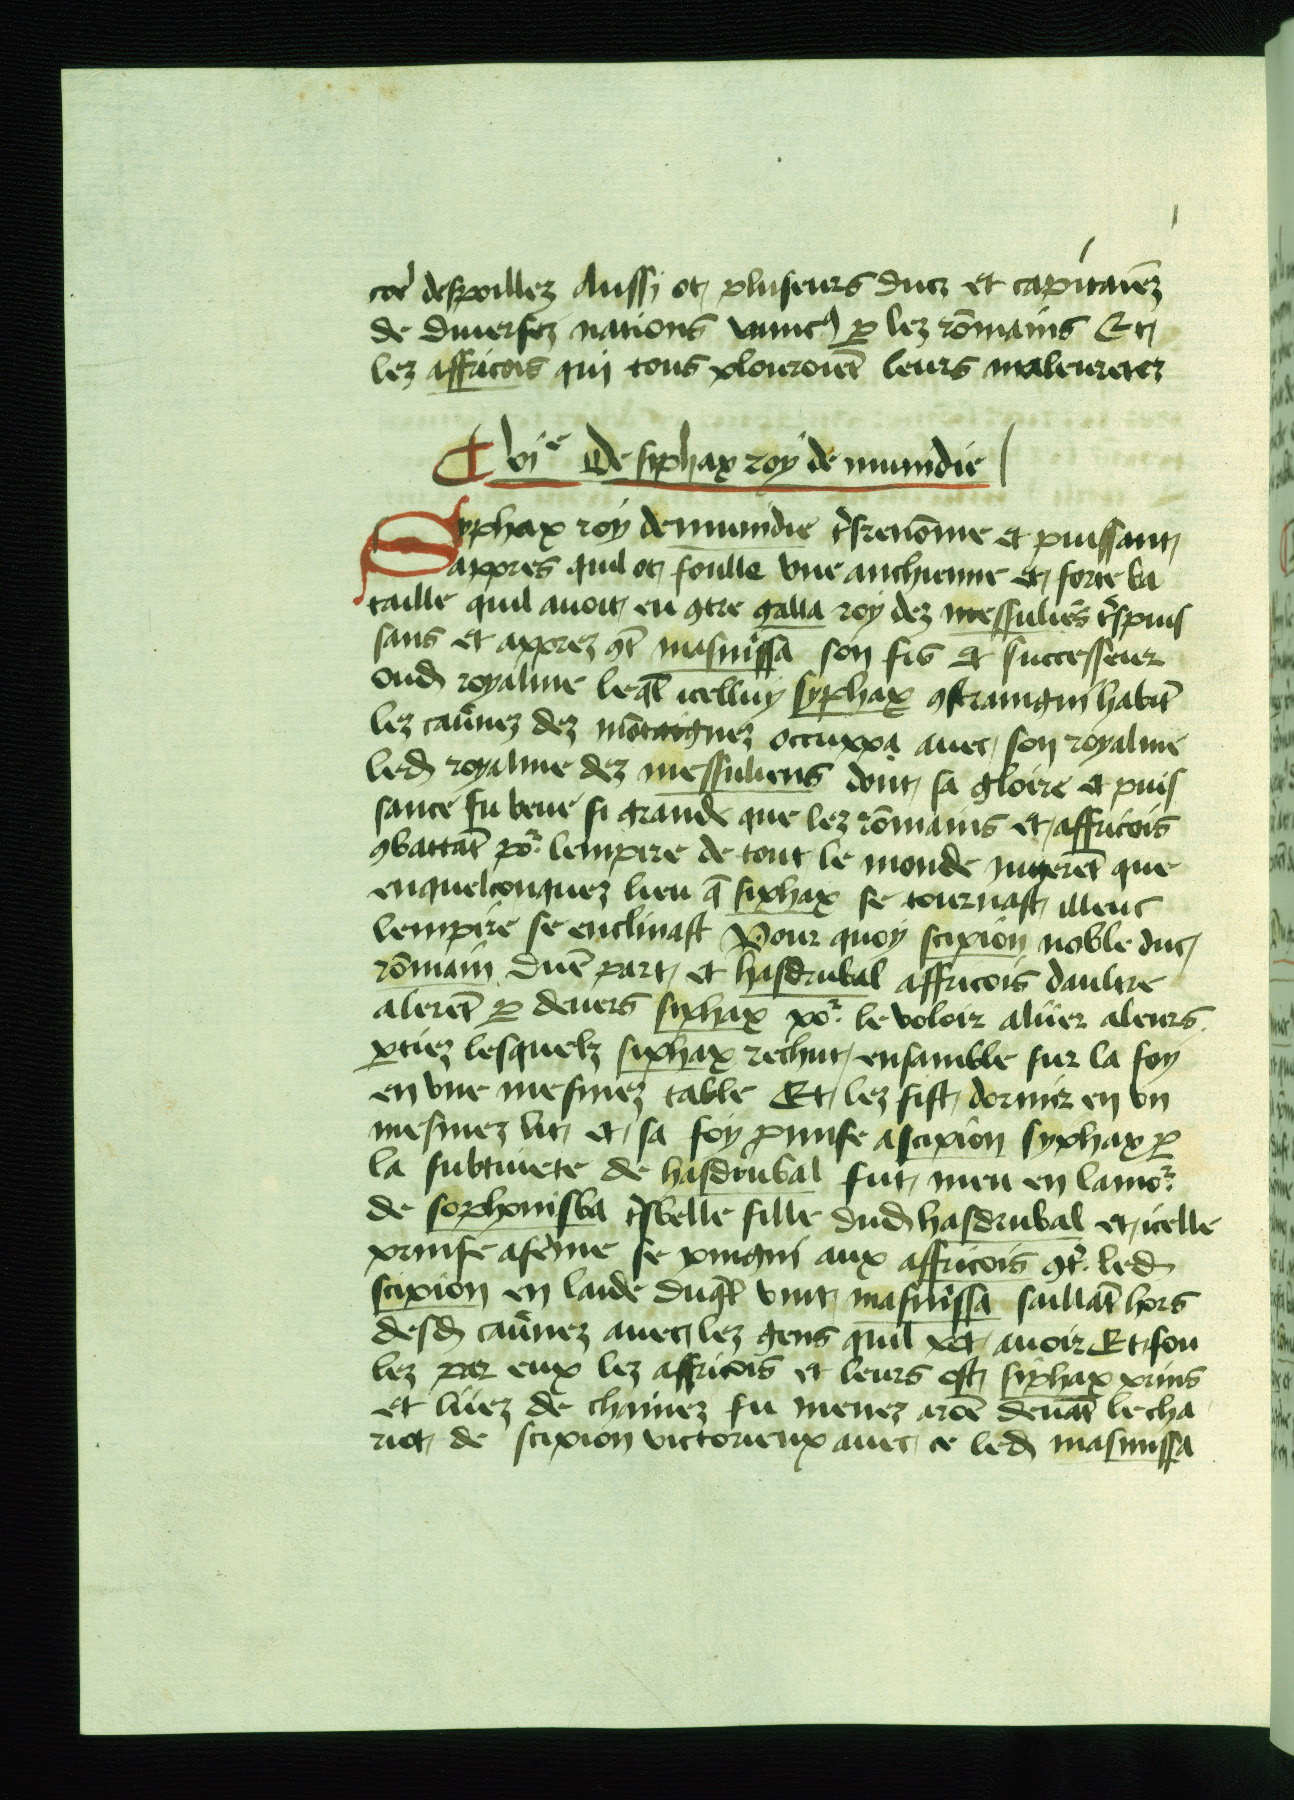 cor̾ despoillez Aussy ot pluseurs ducz et capitaīez
de diuersez nations vaincꝰ ꝑ lez rōmains Et
lez affricois qui tous plouroiēt leurs maleuretez
¶ vjᵉ De siphax roy de numidie
Syphax roy de numidie tʳ̾srenōme et puissant
appres quil ot foulle vne anchienne et forte ba
taille quil auoit en ꝯtre galla roy dez messuliēs tʳ̾spuis
sans et apprez ꝯt̄ masnissa son fis et successeur
oud̾ royalme leql̄ icelluy syphax ꝯstraingni habit̄
lez cauͤnez dez mōtaignez occuppa auec son royalme
led̾ royalme dez messuliens dont sa gloire et puis
sance fu veue si grande que lez rōmains et affricois
ꝯbattāt poʳ lempire de tout le monde jugerēt que
enquelconquez lieu q̄ siphax se tournast illeuc
lempire se enclinast Pour quoy scipion noble duc
rōmain dunē part et hasdrubal affricois daultre
alerēt ꝑ deuers siphax poʳ le voloir alijer aleurs
ꝑtiez lesquelz siphax rechut ensamble sur la foy
en vne mesmez table Et lez fist dormir en vn
mesmez lit et sa foy ꝓmise a scipion syphax ꝑ
la subtiuete de hasdrubal fut meu en lamoʳ
de sophonisba tʳ̾sbelle fille dud̾ hasdrubal et icelle
prinse afēme se joingni aux affricois ꝯtʳ̾ led̾
scipion en laide duql̄ vint masnissa saillāt hors
desd̾ cauͤnez auec lez gens quil pot auoir Et fou
lez par eux lez affricois et leurs ost siphax prins
et lijez de chainez fu menez aroē deuāt le cha
riot de scipion victorieux auec ce led̾ masnissa